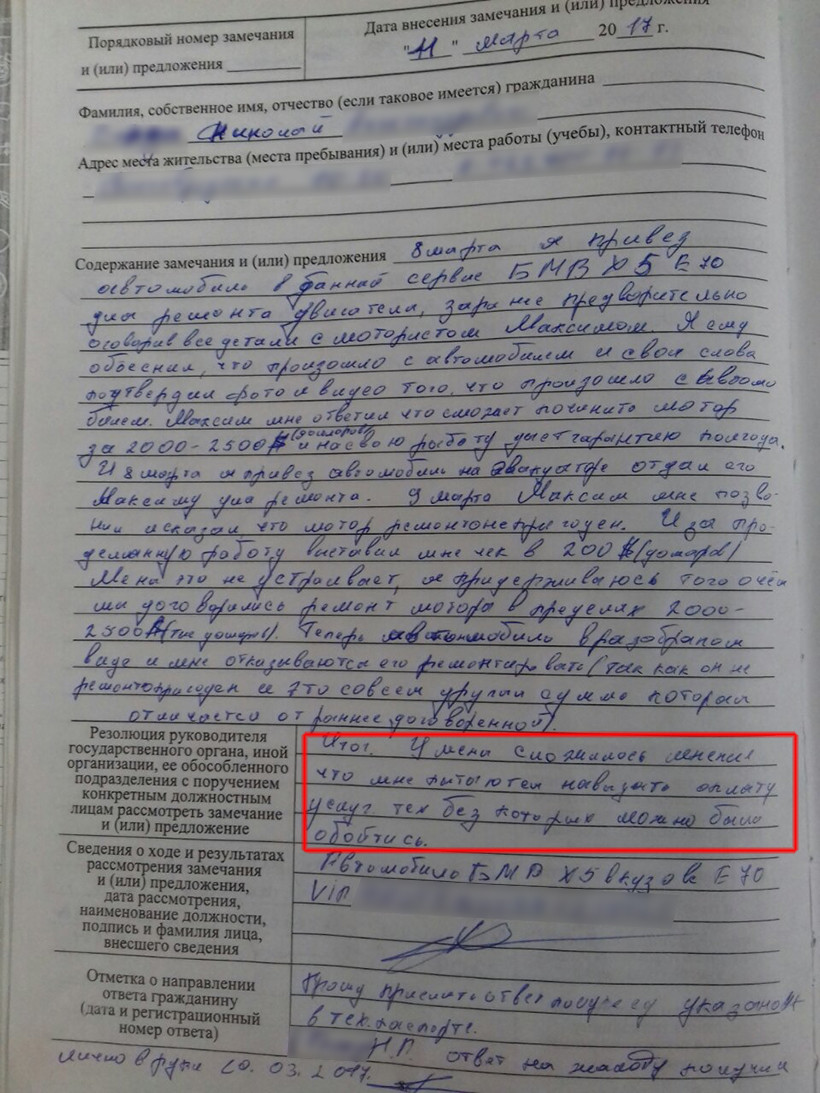 Порядковый номер замечания
и (или) предложения
Дата внесения замечания и (или) предложения
"11" марта 2017 г.
Фамилия, собственное имя, отчество (если таковое имеется) гражданина
Николай
Адрес места жительства (места пребывания) и (или) места работы (учебы), контактный телефон
Содержание замечания и (или) предложения 8 марта я привез
автомобиль в данный сервис БМВ Х5 Е70
для ремонта двигателя, заранее предворительно
оговорив все детали с мотористом Максимом. Я ему
обьяснил, что произошло с автомобилем и свои слова
подтвердил фото и видео того, что произошло с автомо
билем. Максим мне ответил что сможет починить мотор
за 2000-2500$ (долларов) и на свою работу даст гарантию полгода.
И 8 марта я привез автомобиль на эвакуаторе отдал его
Максиму для ремонта. 9 марта Максим мне позво-
нил и сказал, что мотор ремонтонепригоден. И за про-
деланную работу выставил мне чек в 200$ (долларов)
Меня это не устраивает, я придерживаюсь того о чём
мы договорились ремонт мотора в пределах 2000-
2500$ (тыс долларов). Теперь автомобиль в разобраном
виде и мне отказываются его ремонтировать (так как он не
ремонтопригоден и это совсем другая сумма которая
отличается от раннее договоренной).
Резолюция руководителя
государственного органа, иной
организации, ее обособленного
подразделения с поручением
конкретным должностным
лицам рассмотреть замечание
и (или) предложение
Итог. У меня сложилось мнение
что мне пытаются навязать оплату
услуг тех без которых можно было
обойтись.
Сведения о ходе и результатах
рассмотрения замечания
и (или) предложения,
дата рассмотрения,
наименование должности,
подпись и фамилия лица,
внесшего сведения
Автомобиль БМВ Х5 в кузове Е70
VIN
Отметка о направлении
ответа гражданину
(дата и регистрационный
номер ответа)
Прошу прислать ответ по адресу указаном
в тех.паспорте.
Н.П. ответ на жалобу получил
лично в руки 20.03.2017.